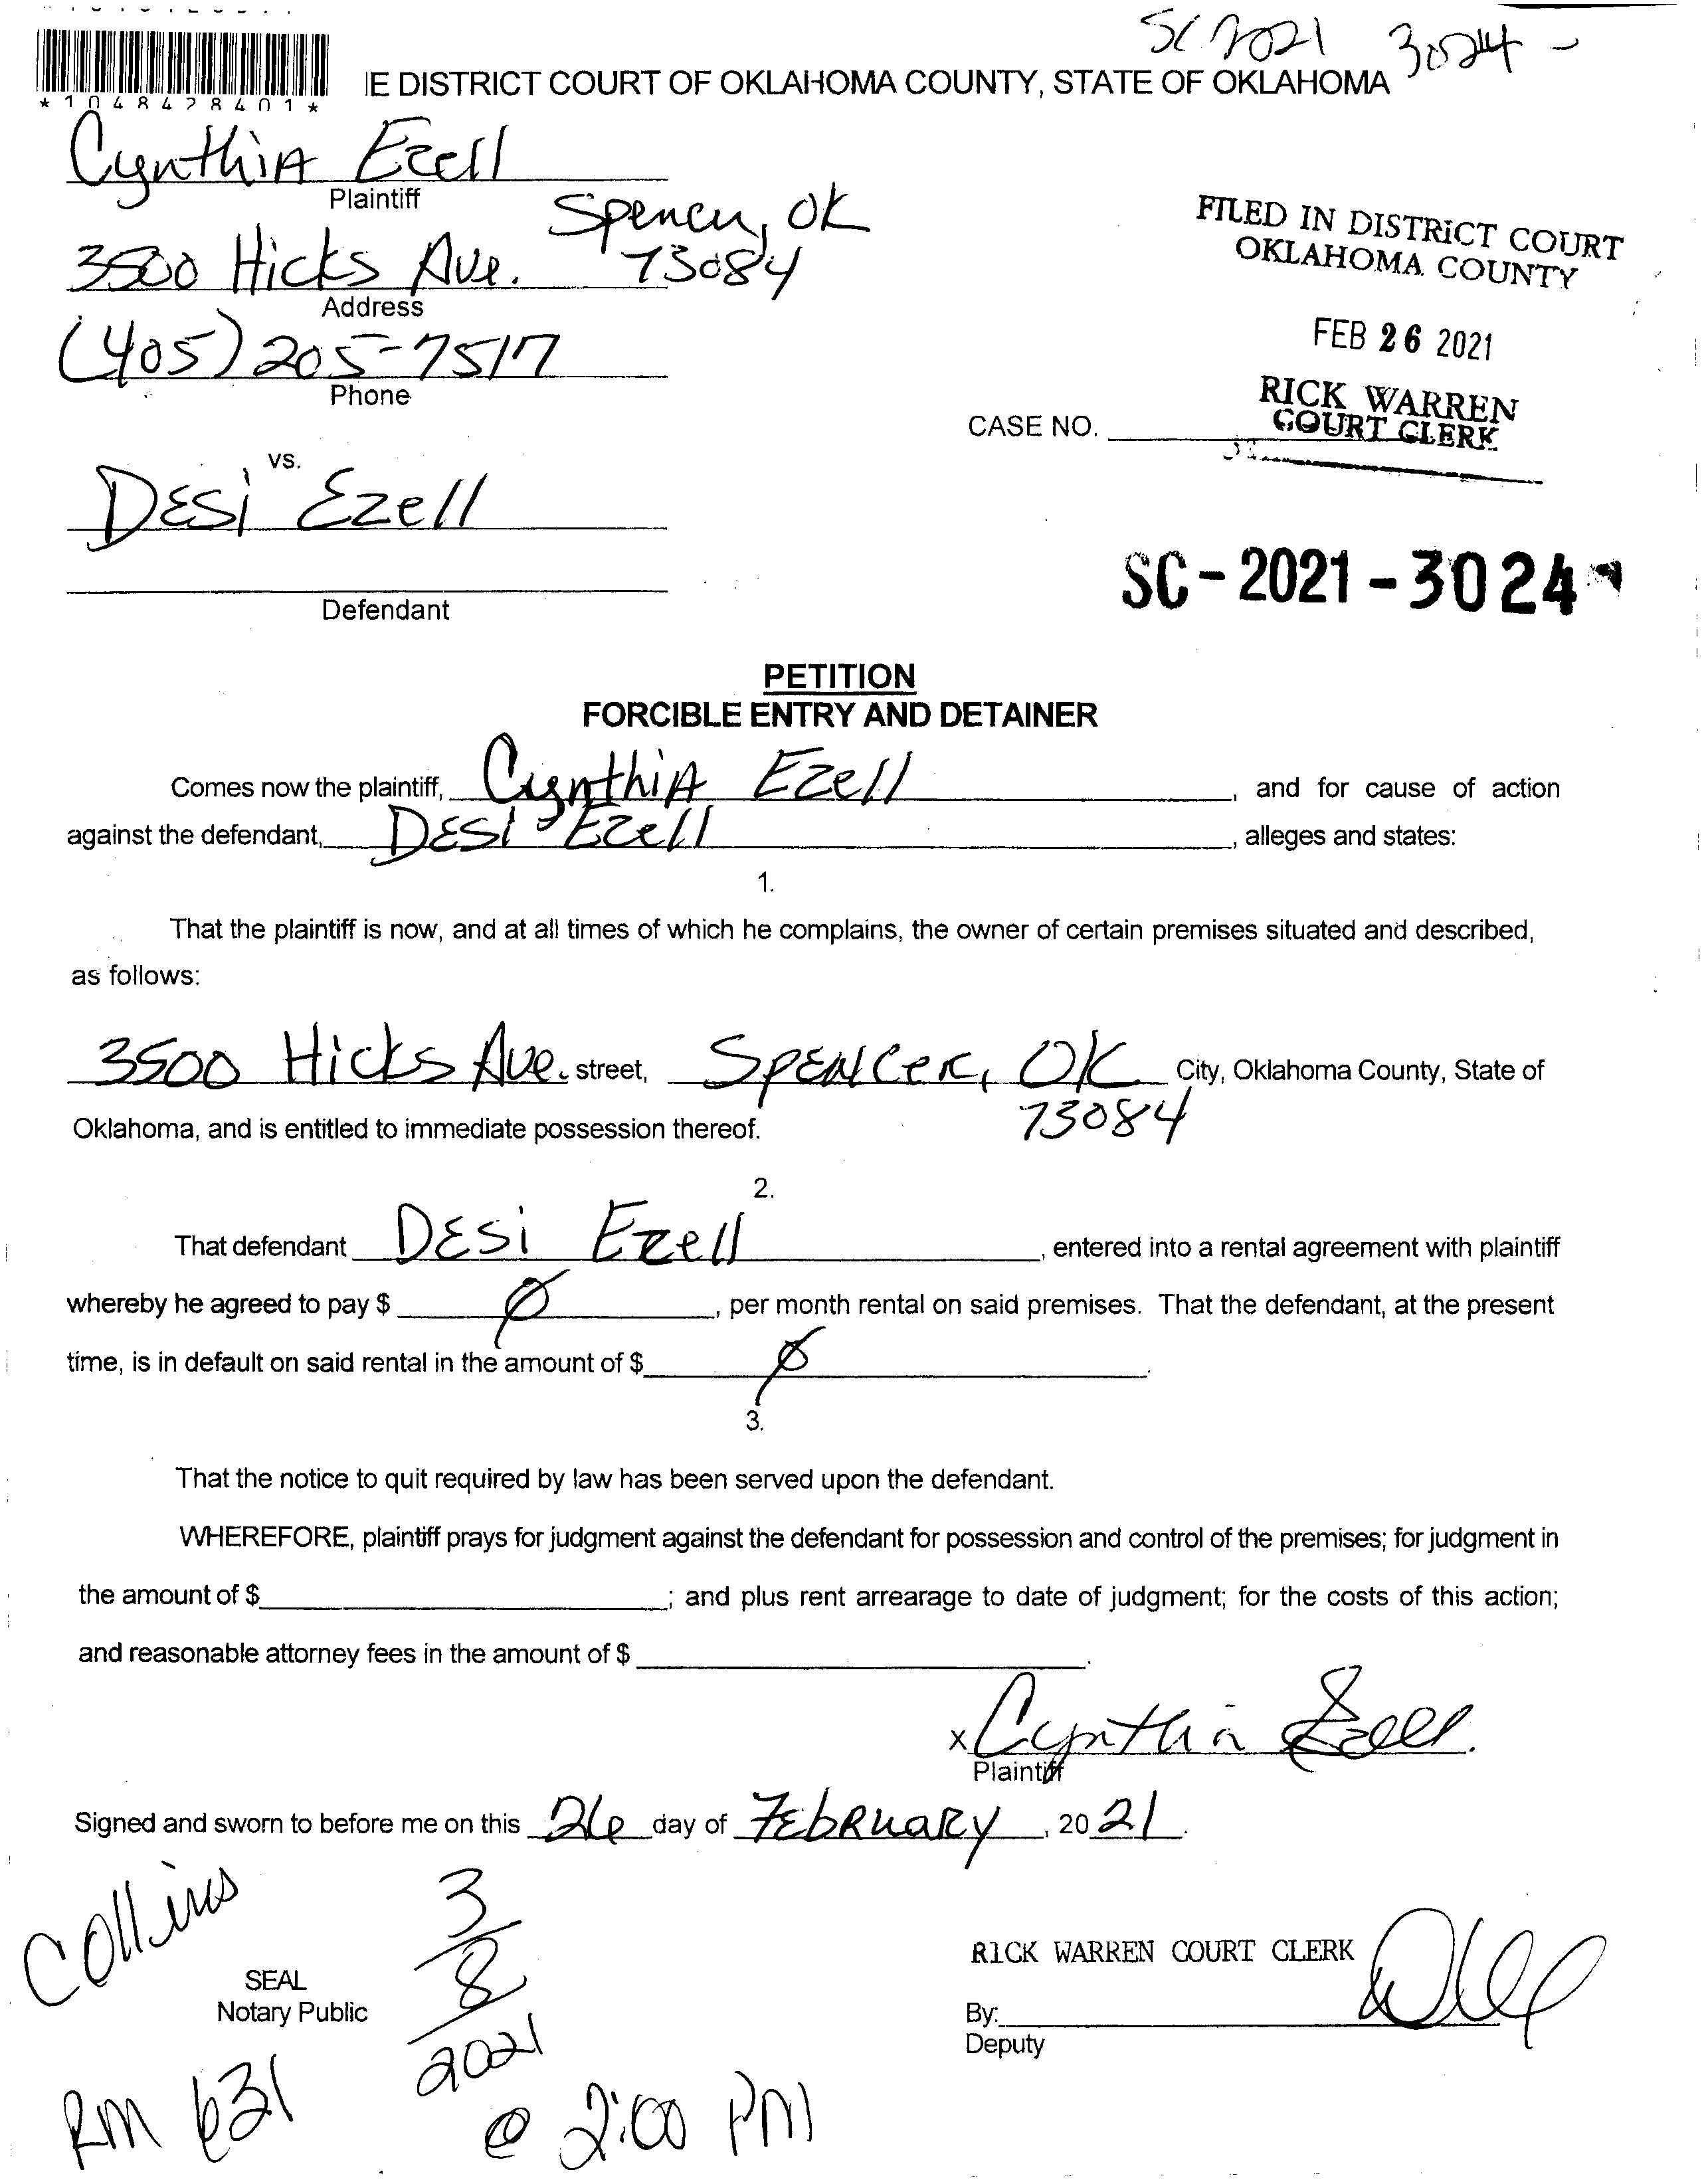 SC 2021 3024-
*1048428401*
IE DISTRICT COURT OF OKLAHOMA COUNTY, STATE OF OKLAHOMA
Cynthia Ezell
Plaintiff
Spencer, OK
3500 Hicks Ave. 73084
Address
(405) 205-7517
Phone
FILED IN DISTRICT COURT
OKLAHOMA COUNTY
FEB 26 2021
RICK WARREN
COURT CLERK
CASE NO.
vs.
Desi Ezell
Defendant
SC-2021-3024
PETITION
FORCIBLE ENTRY AND DETAINER
Comes now the plaintiff, Cynthia Ezell, and for cause of action
against the defendant, Desi Ezell, alleges and states:
1.
That the plaintiff is now, and at all times of which he complains, the owner of certain premises situated and described,
as follows:
3500 Hicks Ave. street, Spencer, OK City, Oklahoma County, State of
73084
Oklahoma, and is entitled to immediate possession thereof.
2.
That defendant Desi Ezell, entered into a rental agreement with plaintiff
whereby he agreed to pay $ Ø, per month rental on said premises. That the defendant, at the present
time, is in default on said rental in the amount of $ Ø.
3.
That the notice to quit required by law has been served upon the defendant.
WHEREFORE, plaintiff prays for judgment against the defendant for possession and control of the premises; for judgment in
the amount of $ ; and plus rent arrearage to date of judgment; for the costs of this action;
and reasonable attorney fees in the amount of $ .
x Cynthia Ezell
Plaintiff
Signed and sworn to before me on this 26 day of February, 2021.
Collins
3/8/2021
SEAL
Notary Public
RICK WARREN COURT CLERK
By:
Deputy
RM 631
@ 2:00 PM